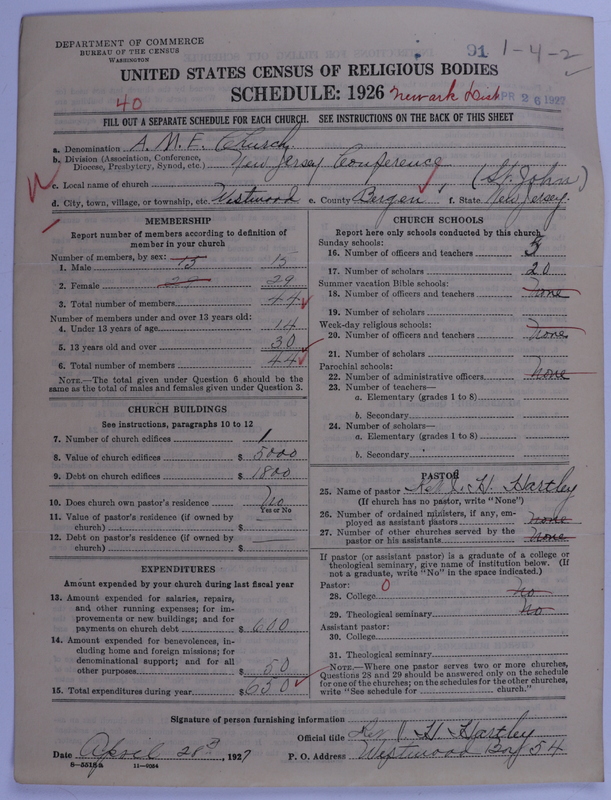 DEPARTMENT OF COMMERCE
BUREAU OF THE CENSUS
WASHINGTON
91 1-4-2
UNITED STATES CENSUS OF RELIGIOUS BODIES
SCHEDULE: 1926 Newark Dist
APR 26 1927
40
FILL OUT A SEPARATE SCHEDULE FOR EACH CHURCH. SEE INSTRUCTIONS ON THE BACK OF THIS SHEET
a. Denomination A. M. E. Church
b. Division (Association, Conference, Diocese, Presbytery, Synod, etc.) New Jersey Conference
c. Local name of church (St. John)
d. City, town, village, or township, etc. Westwood e. County Bergen f. State New Jersey.
MEMBERSHIP
Report number of members according to definition of
member in your church
Number of members, by sex:
1. Male 15 15
2. Female 29
3. Total number of members 44
Number of members under and over 13 years old:
4. Under 13 years of age 14
5. 13 years old and over 30
6. Total number of members 44
NOTE.—The total given under Question 6 should be
same as the total of males and females given under Question 3.
CHURCH BUILDINGS
See instructions, paragraphs 10 to 12
7. Number of church edifices 1
8. Value of church edifices $ 5000
9. Debt on church edifices $ 1800
10. Does church own pastor's residence No
Yes or No
11. Value of pastor's residence (if owned by
church) $
12. Debt on pastor's residence (if owned by
church) $
EXPENDITURES
Amount expended by your church during last fiscal year
13. Amount expended for salaries, repairs,
and other running expenses; for im-
provements or new buildings; and for
payments on church debt $ 600
14. Amount expended for benevolences, in-
cluding home and foreign missions; for
denominational support; and for all
other purposes $ 50
15. Total expenditures during year $ 650
CHURCH SCHOOLS
Report here only schools conducted by this church
Sunday schools:
16. Number of officers and teachers
17. Number of scholars 20
Summer vacation Bible schools:
18. Number of officers and teachers None
19. Number of scholars
Week-day religious schools:
20. Number of officers and teachers None
21. Number of scholars
Parochial schools:
22. Number of administrative officers None
23. Number of teachers—
a. Elementary (grades 1 to 8)
b. Secondary
24. Number of scholars—
a. Elementary (grades 1 to 8)
b. Secondary
PASTOR
25. Name of pastor Rev. J. H. Hartley
(If church has no pastor, write "None")
26. Number of ordained ministers, if any, em-
ployed as assistant pastors none
27. Number of other churches served by the
pastor or his assistants None
If pastor (or assistant pastor) is a graduate of a college or
theological seminary, give name of institution below. (If
not a graduate, write "No" in the space indicated.)
Pastor: 0
28. College No
29. Theological seminary No
Assistant pastor:
30. College
31. Theological seminary
NOTE.—Where one pastor serves two or more churches,
Questions 28 and 29 should be answered only on the schedule
for one of the churches; on the schedules for the other churches,
write "See schedule for church."
Signature of person furnishing information
Official title Rev J H Hartley
Date April 20, 1927 P. O. Address Westwood Box 54
8-5518a 11-9054